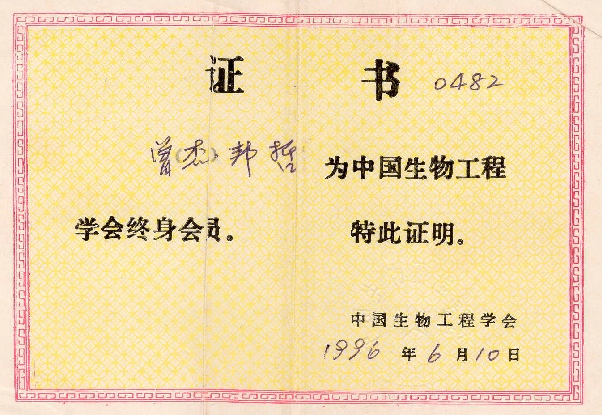 证 书 0482
曾(杰)邦哲 为中国生物工程
学会终身会员。 特此证明。
中国生物工程学会
1996年6月10日